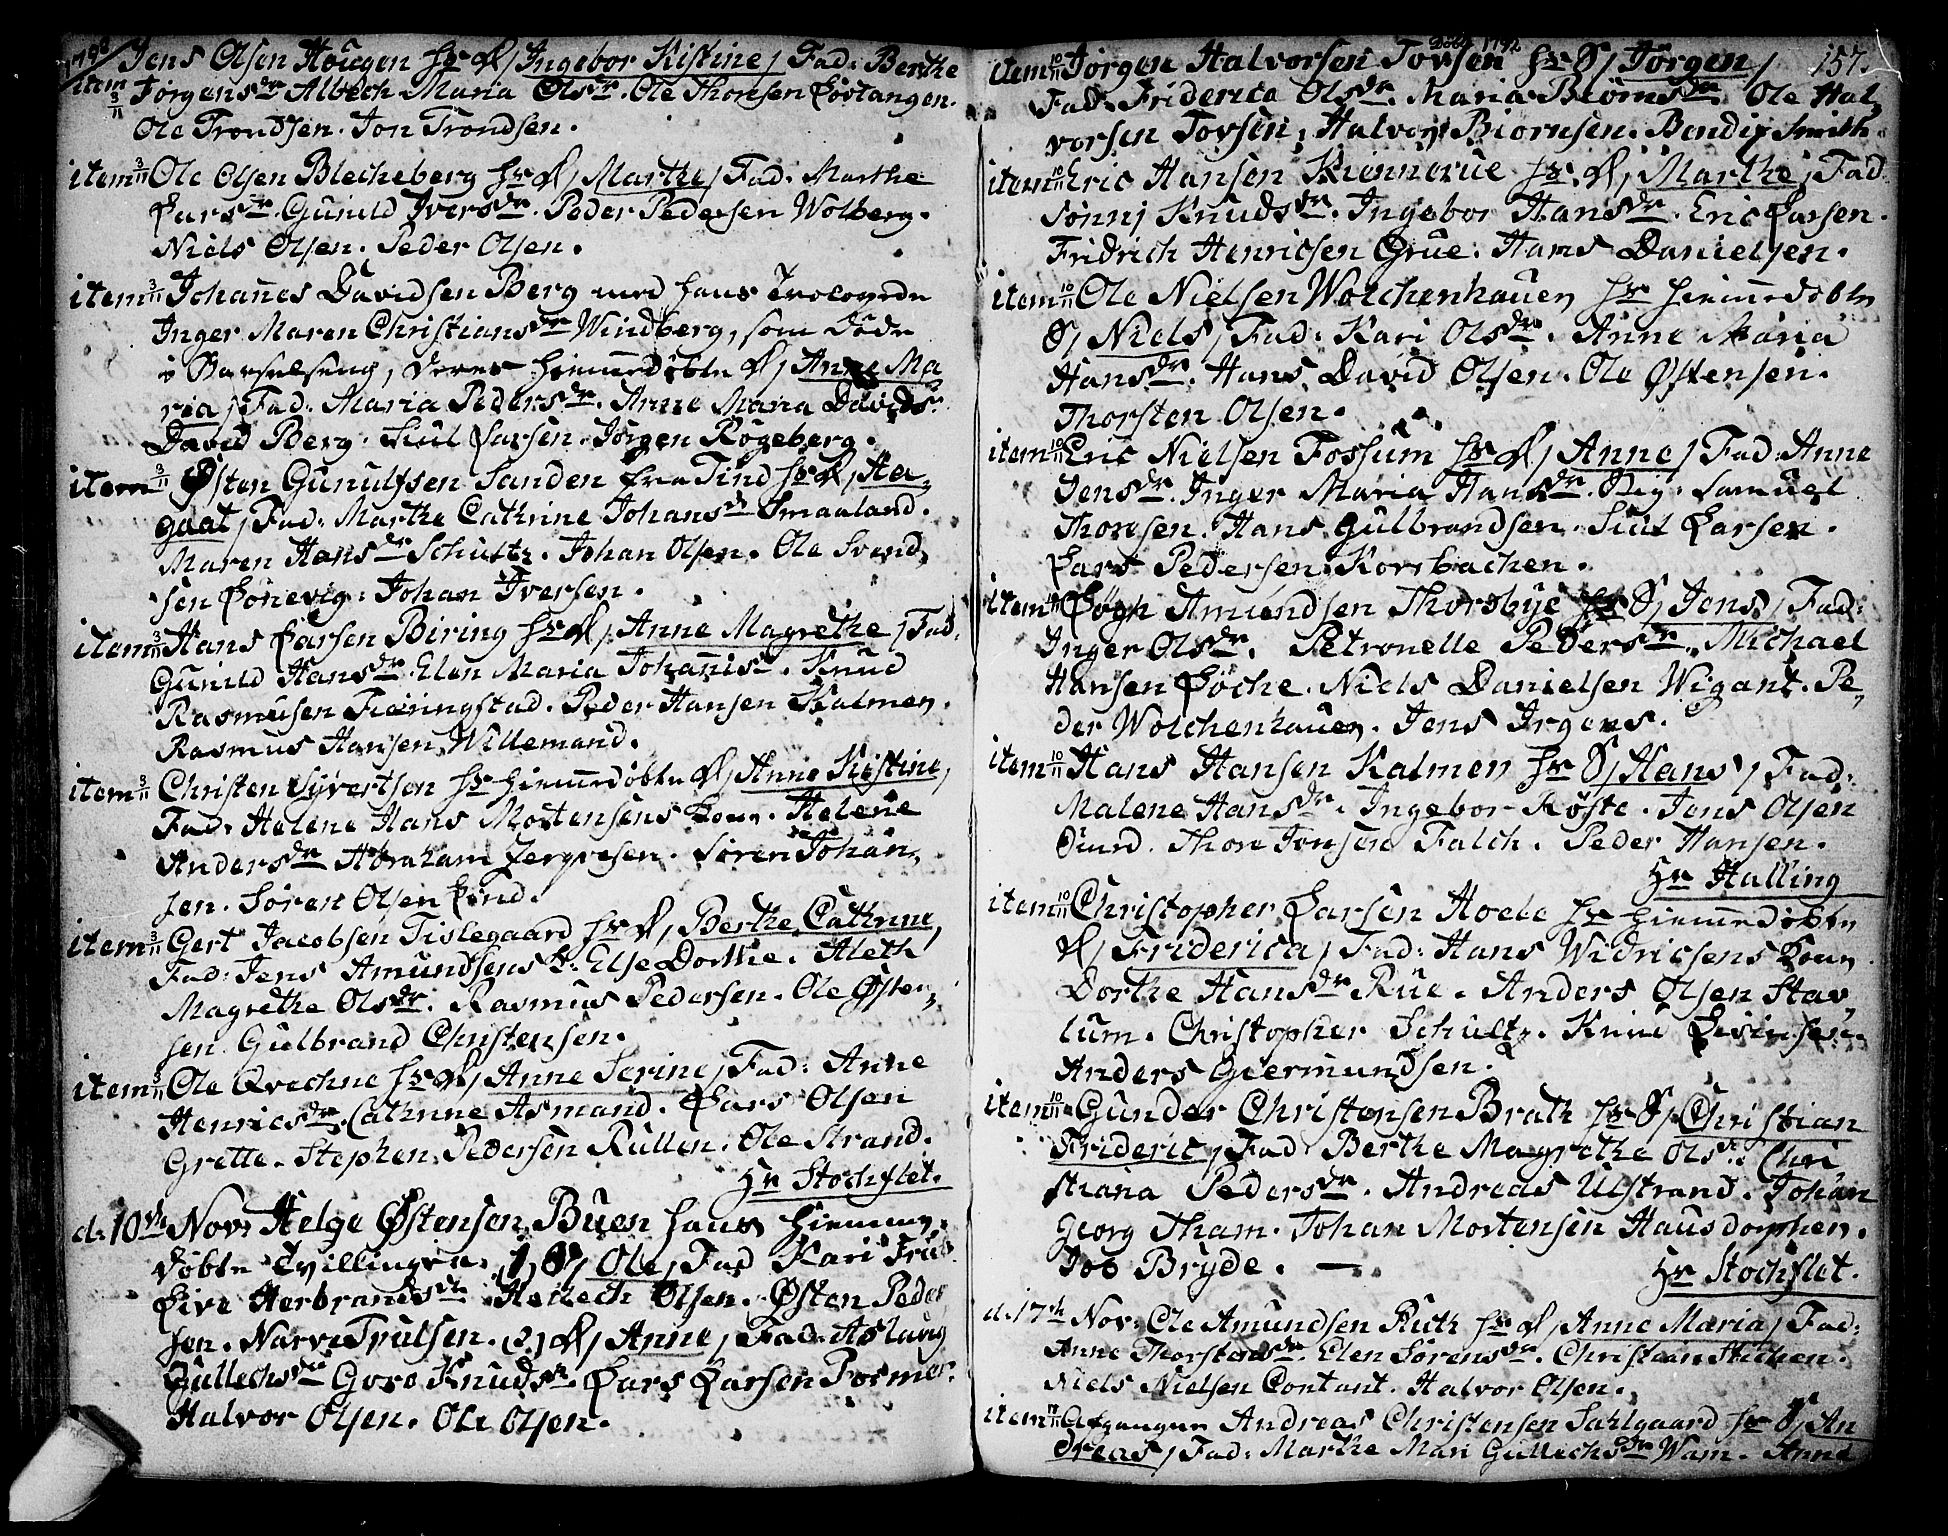 1793 Jens Olsen Hougen hs D/ Ingebor Kistine/ Fad: Berthe
item 3/11 Jørgensdr Albech Maria Olsdr. Ole Thorsen Løvtangen.
Ole Trondsen. Jon Trondsen.
item 3/11 Ole Olsen Blecheberg hs D/ Marthe/ Fad: Marthe
Larsdr. Gunild Iversdr. Peder Pedersen Wolberg.
Niels Olsen. Peder Olsen.
item 3/11 Johannes Davidsen Berg med hans Trolovede
Inger Maren Christiansdr Windberg, som døde
i Barselseng, deres hiemmedøbte D/ Anne Ma
ria/ Fad: Maria Pedersdr. Anne Maria Davidsdr
David Berg. Siul Larsen. Jørgen Røgeberg.
item 3/11 Østen Gunulfsen Sanden fra Tind hs D/ Aa,
gaat/ Fad: Marthe Cathrine Johansdr Smaaland.
Maren Hansdr Schultz. Johan Olsen. Ole Svend,
sen Lønevig. Johan Iversen.
item 3/11 Hans Larsen Biring hs D/ Anne Magrethe/ Fad.
Gunild Hansdr. Elen Maria Johannisdr. Knud
Rasmusen Fiæringstad. Peder Hansen Kalmen.
Rasmus Hansen Willemand.
item 3/11 Christen Syvertsen hs hiemmedøbte D/ Anne Kistine/
Fad: Helene Hans Mortensens Kone. Helene
Andersdr Abraham Jergvesen. Søren Johan,
sen. Søren Olsen Lind.
item 3/11 Gert Jacobsen Tislegaard hs D/ Berthe Cathrine/
Fad: Jens Amundsens K: Else Dorthe. Aleth
Magrethe Olsdr. Rasmus Pedersen. Ole Østen,
sen. Gulbrand Christensen.
item 3/11 Ole Qvechne hs D/ Anne Serine/ Fad: Anne
Henricsdr. Cathrine Asmand. Lars Olsen
Grette. Stephen Pedersen Rullen. Ole Strand.
Hr Stochflet.
d. 10de Nov: Helge Østensen Buen hans hiemme,
døbte Tvillinger. 1) S/ Ole/ Fad Kari Truls
Live Herbrandsdr Hellech Olsen. Østen Peder
sen. Narve Trulsen. 2) D/ Anne/ Fad: Aslaug
Gullechsdr Goro Knudsdr. Lars Larsen Posmer.
Halvor Olsen. Ole Olsen.
Døbt 1792
157.
item 10/11 Jørgen Halvorsen Tovsen hs S/ Jørgen/
Fad. Friderica Olsdr. Maria Biørnsdr. Ole Hal,
vorsen Tovsen. Halvor Biørnsen. Bendix Smith.
item 10/11 Eric Hansen Kiennerue hs. D/ Marthe/ Fad.
Sønnj Knudsdr. Ingebor Hansdr. Eric Larsen.
Fridrich Henricsen Grue. Hans Danielsen.
item 10/11 Ole Nielsen Wolchenhauer hs hiemmedøbte
S/ Niels/ Fad: Kari Olsdr. Anne Maria
Hansdr. Hans David Olsen. Ole Østensen.
Thorsten Olsen.
item 10/11 Eric Nielsen Fossum hs D/ Anne/ Fad: Anne
Jensdr. Inger Maria Hansdr. Stig. Samuel
Thoresen. Hans Gulbrandsen. Siul Larsen.
Lars Pedersen Korsbachen.
item 10/11 Løgh Amundsen Thorsbye hs S/ Jens/ Fad:
Inger Olsdr. Petronelle Pedersdr. Michael
Hansen Løche. Niels Danielsen Wigant. Pe,
der Wolchenhauer. Jens Irgens.
item 10/11 Hans Hansen Kalmen hs S/ Hans/ Fad:
Malene Hansdr. Ingebor Røste. Jens Olsen
Duud. Thore Jonsen Falch. Peder Hansen.
Hr Halling
item 10/11 Christopher Larsen Hoele hs hiemmedøbte
D/ Friderica/ Fad: Hans Widricsens Kone
Dorthe Hansdr Rue. Anders Olsen Stav
lum. Christopher Schultz. Knud Levinsen.
Anders Giermundsen.
item 10/11 Gunder Christensen Brath hs S/ Christian
Frideric/ Fad Berthe Magrethe Olsdr. Chri
stiana Pedersdr. Andreas Ulstrand. Johan
Georg Tham. Johan Mortensen Hausdorphen.
Job Bryde. —
Hr Stochflet.
d. 17th Nov: Ole Amundsen Ruth hs D/ Anne Maria/ Fad:
Anne Thorstensdr. Elen Sørensdr. Christian Stichen.
Niels Nielsen Contant. Halvor Olsen.
item 17/11 Afgangne Andreas Christensen Sahlgaard hs S/ An
dreas/ Fad: Marthe Mari Gullechsdr Wam. Anne